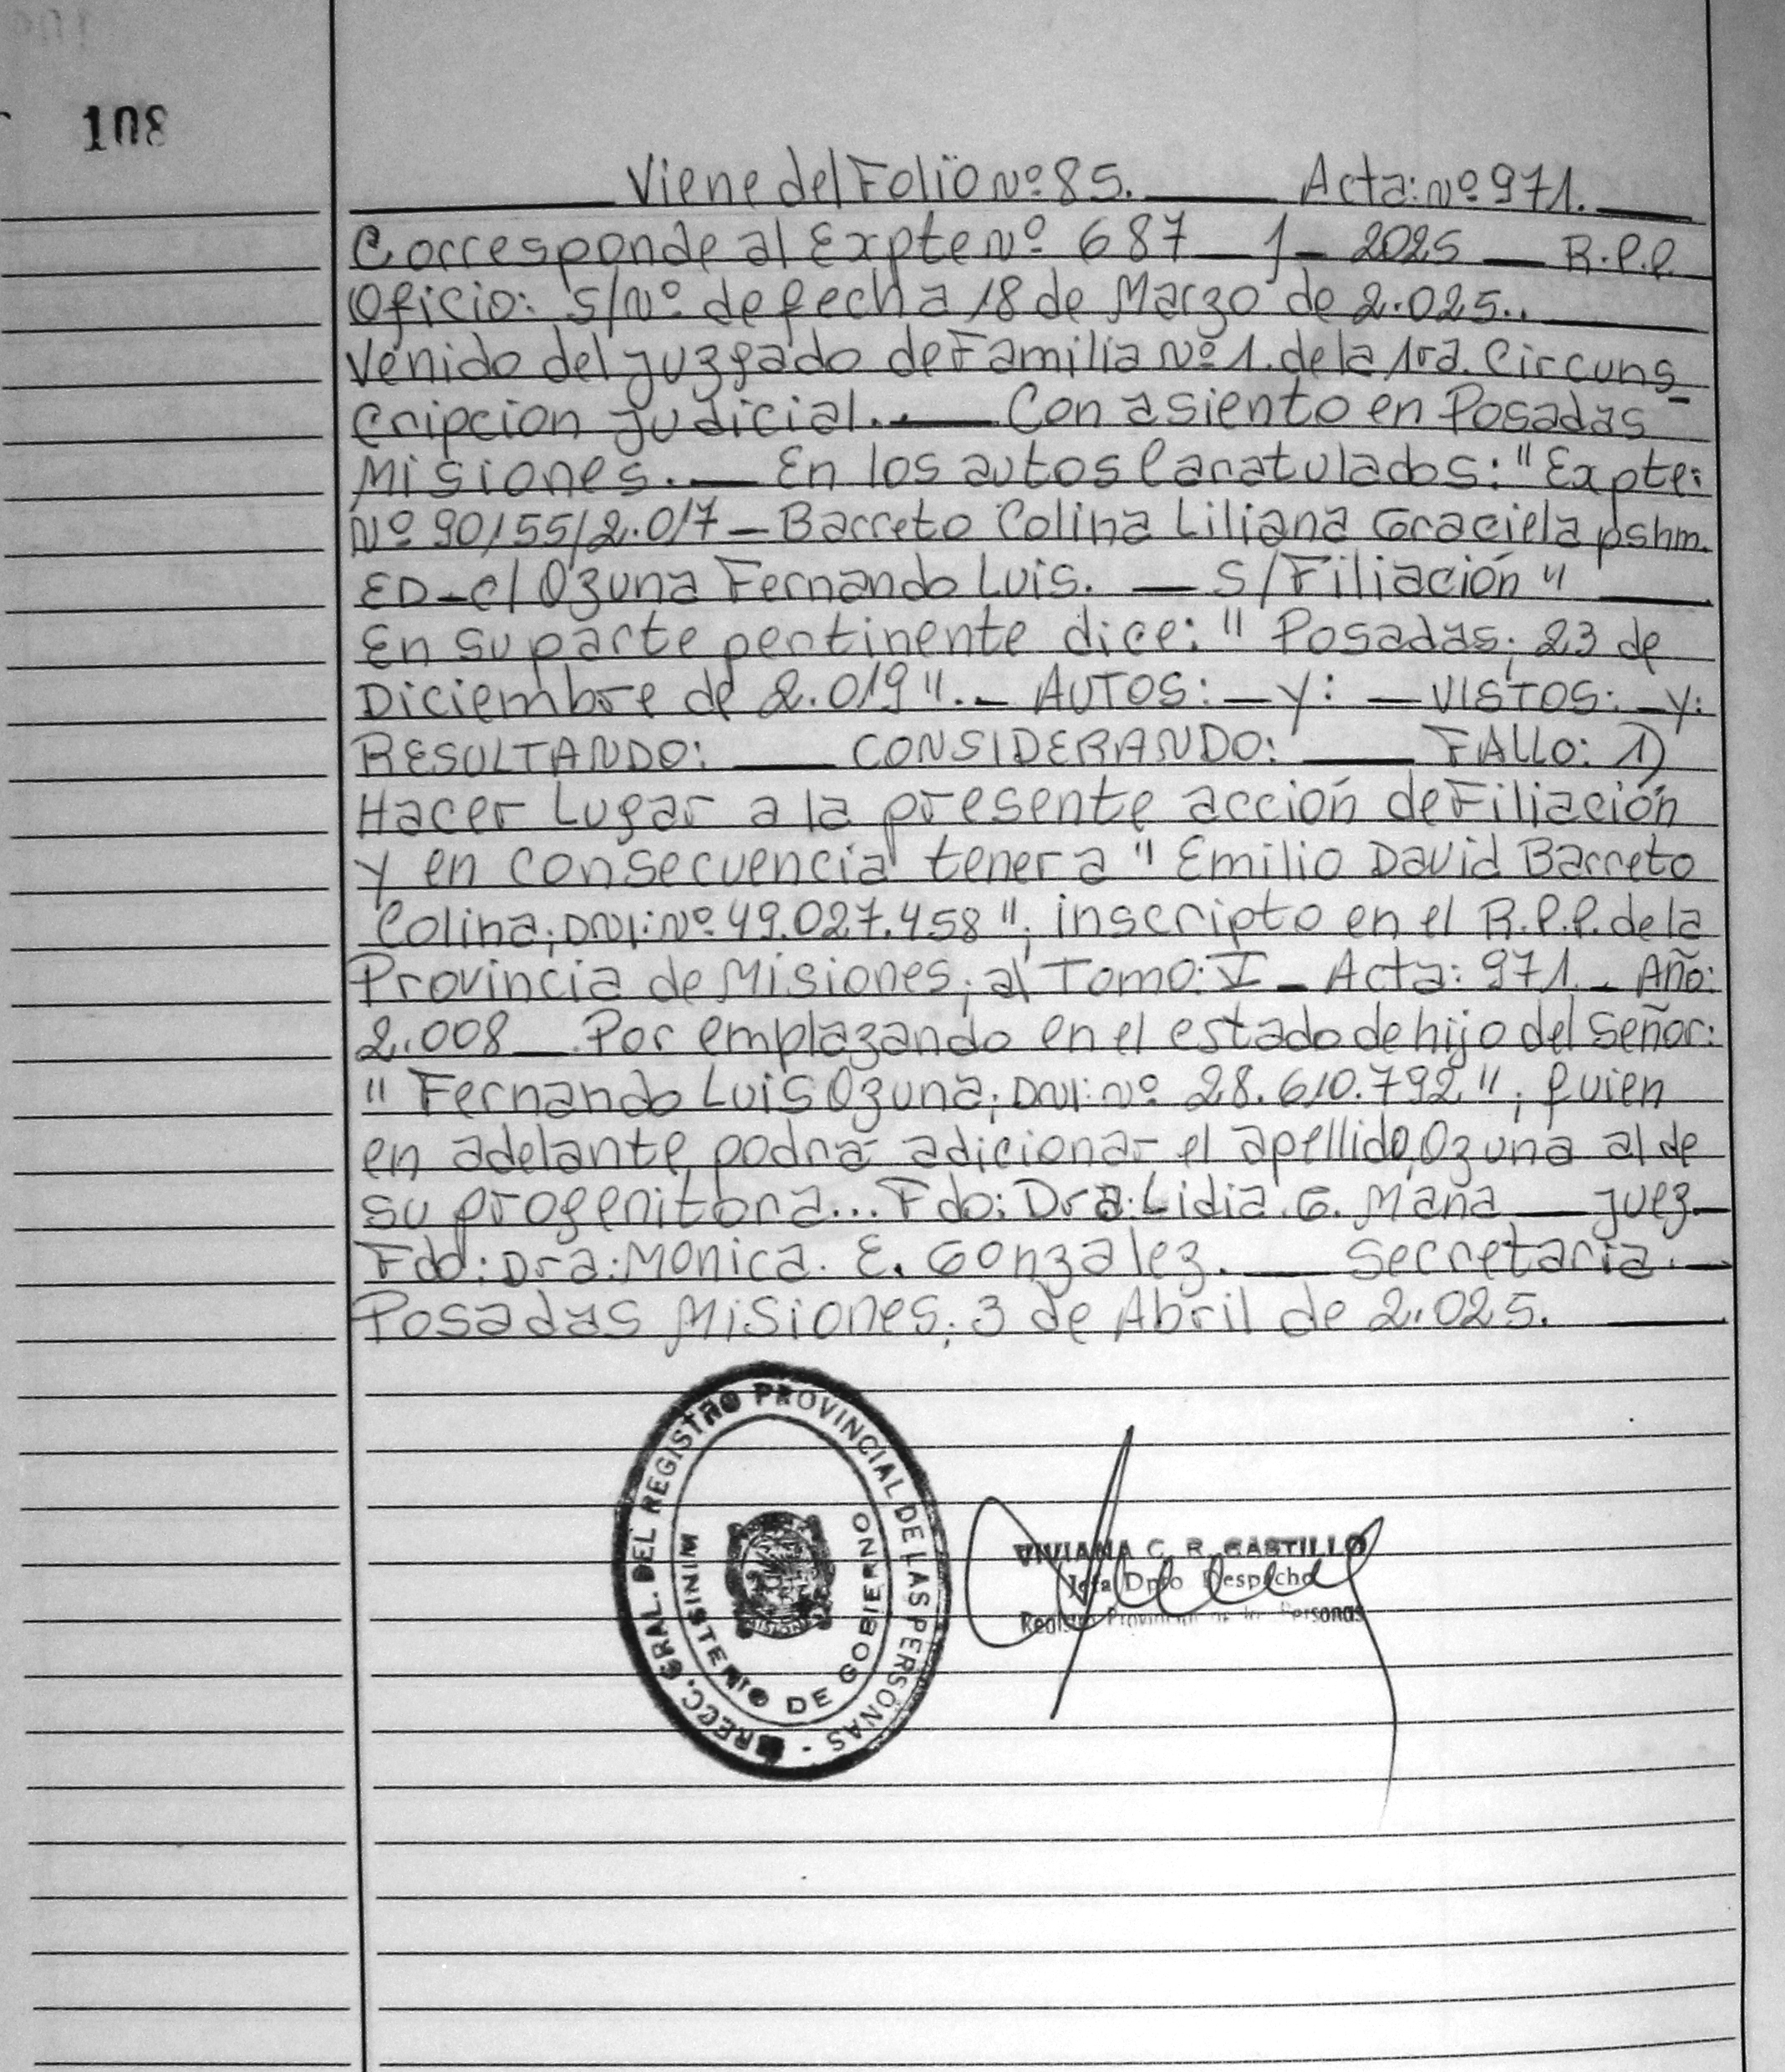 108
Viene del Folio Nº 85. Acta: Nº 971.
Corresponde al Expte Nº 687 - J - 2025 - R.P.P
Oficio: S/Nº de fecha 18 de Marzo de 2.025..
Venido del Juzgado de Familia Nº 1. de la 1ra. Circuns
cripcion Judicial.. Con asiento en Posadas
Misiones. En los autos Caratulados: "Expte:
Nº 90155/2.017 - Barreto Colina Liliana Graciela pshm.
ED-c/ Ozuna Fernando Luis. - S/Filiación"
En su parte pertinente dice: "Posadas; 23 de
Diciembre de 2.019". AUTOS: - Y: - VISTOS: - Y:
RESULTANDO: CONSIDERANDO: FALLO: 1)
Hacer Lugar a la presente acción de Filiación
Y en consecuencia tener a "Emilio David Barreto
Colina; DNI: Nº 49.027.458"; inscripto en el R.P.P. de la
Provincia de Misiones; al Tomo: V - Acta: 971 - Año:
2.008 - Por emplazando en el estado de hijo del Señor:
"Fernando Luis Ozuna; DNI: Nº 28.610.792"; quien
en adelante podrá adicionar el apellido Ozuna al de
su progenitora... Fdo: Dra: Lidia. G. Mana - Juez-
Fdo: Dra: Monica. E. Gonzalez. Secretaria.
Posadas Misiones; 3 de Abril de 2.025.
DIRECC. GRAL. DEL REGISTRO PROVINCIAL DE LAS PERSONAS -
MINISTERIO DE GOBIERNO
VIVIANA C. R. CASTILLO
Jefa Dpto Despacho
Registro Provincial de las Personas